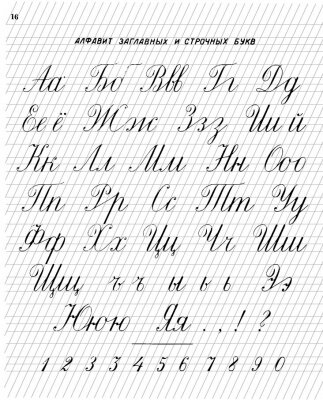 16
АЛФАВИТ ЗАГЛАВНЫХ И СТРОЧНЫХ БУКВ
Аа Бб Ввв Гг Дд
Ее ё Жж Ззз Ии й
Кк Лл Мм Нн Оо
Пп Рр Сс Тт Уу
Фф Хх Цц Чч Шш
Щщ ъ ъ ы ь ь Ээ
Ююю Яя . , ! ?
1 2 3 3 4 5 6 7 8 9 0